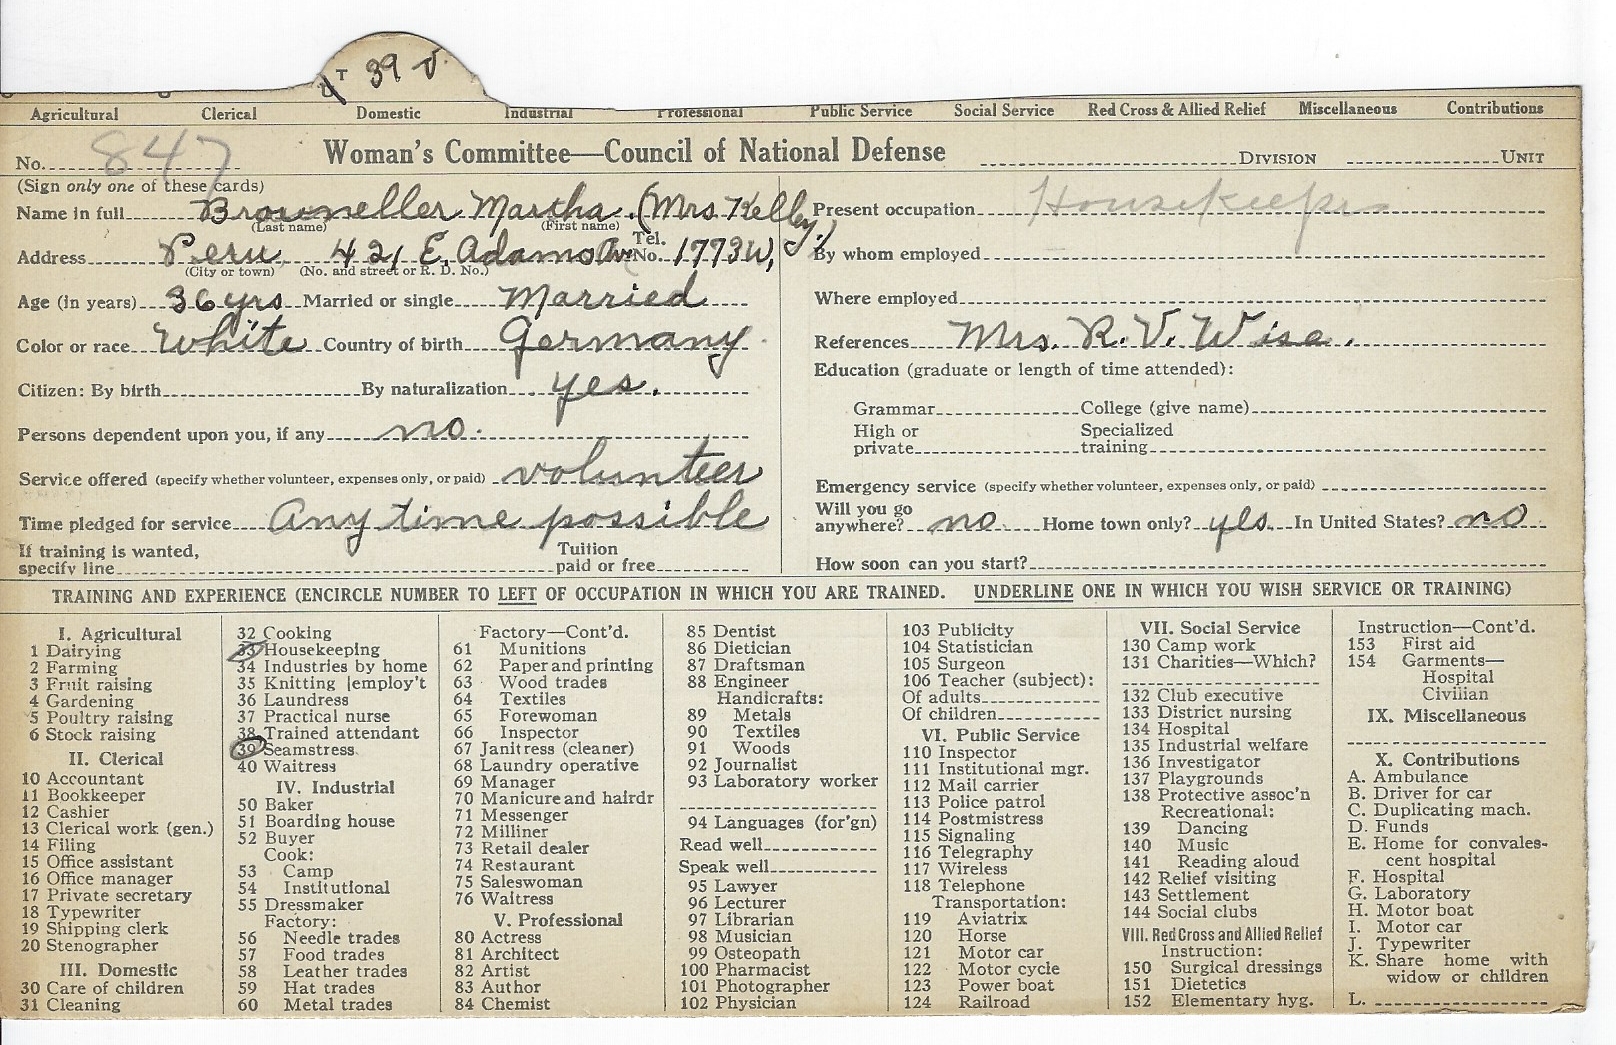 T 39 v.
Agricultural Clerical Domestic Industrial Professional Public Service Social Service Red Cross & Allied Relief Miscellaneous Contributions
No. 847 Woman's Committee—Council of National Defense DIVISION UNIT
(Sign only one of these cards)
Name in full Brouneller Martha. (Mrs. Kelley.)
(Last name) (First name)
Address Peru 421 E. Adams Ave Tel. No. 1773W,
(City or town) (No. and street or R. D. No.)
Age (in years) 36 yrs Married or single Married
Color or race White Country of birth Germany
Citizen: By birth By naturalization yes.
Persons dependent upon you, if any no.
Service offered (specify whether volunteer, expenses only, or paid) volunteer
Time pledged for service Any time possible
If training is wanted, specify line Tuition paid or free
Present occupation Housekeeper
By whom employed
Where employed
References Mrs. R. V. Wise.
Education (graduate or length of time attended):
Grammar College (give name)
High or private Specialized training
Emergency service (specify whether volunteer, expenses only, or paid)
Will you go anywhere? no Home town only? yes In United States? no
How soon can you start?
TRAINING AND EXPERIENCE (ENCIRCLE NUMBER TO LEFT OF OCCUPATION IN WHICH YOU ARE TRAINED. UNDERLINE ONE IN WHICH YOU WISH SERVICE OR TRAINING)
I. Agricultural
1 Dairying
2 Farming
3 Fruit raising
4 Gardening
5 Poultry raising
6 Stock raising
II. Clerical
10 Accountant
11 Bookkeeper
12 Cashier
13 Clerical work (gen.)
14 Filing
15 Office assistant
16 Office manager
17 Private secretary
18 Typewriter
19 Shipping clerk
20 Stenographer
III. Domestic
30 Care of children
31 Cleaning
32 Cooking
33 Housekeeping
34 Industries by home
35 Knitting [employ't
36 Laundress
37 Practical nurse
38 Trained attendant
39 Seamstress
40 Waitress
IV. Industrial
50 Baker
51 Boarding house
52 Buyer
Cook:
53 Camp
54 Institutional
55 Dressmaker
Factory:
56 Needle trades
57 Food trades
58 Leather trades
59 Hat trades
60 Metal trades
Factory—Cont'd.
61 Munitions
62 Paper and printing
63 Wood trades
64 Textiles
65 Forewoman
66 Inspector
67 Janitress (cleaner)
68 Laundry operative
69 Manager
70 Manicure and hairdr
71 Messenger
72 Milliner
73 Retail dealer
74 Restaurant
75 Saleswoman
76 Waitress
V. Professional
80 Actress
81 Architect
82 Artist
83 Author
84 Chemist
85 Dentist
86 Dietician
87 Draftsman
88 Engineer
Handicrafts:
89 Metals
90 Textiles
91 Woods
92 Journalist
93 Laboratory worker
94 Languages (for'gn)
Read well
Speak well
95 Lawyer
96 Lecturer
97 Librarian
98 Musician
99 Osteopath
100 Pharmacist
101 Photographer
102 Physician
103 Publicity
104 Statistician
105 Surgeon
106 Teacher (subject):
Of adults
Of children
VI. Public Service
110 Inspector
111 Institutional mgr.
112 Mail carrier
113 Police patrol
114 Postmistress
115 Signaling
116 Telegraphy
117 Wireless
118 Telephone
Transportation:
119 Aviatrix
120 Horse
121 Motor car
122 Motor cycle
123 Power boat
124 Railroad
VII. Social Service
130 Camp work
131 Charities—Which?
132 Club executive
133 District nursing
134 Hospital
135 Industrial welfare
136 Investigator
137 Playgrounds
138 Protective assoc'n
Recreational:
139 Dancing
140 Music
141 Reading aloud
142 Relief visiting
143 Settlement
144 Social clubs
VIII. Red Cross and Allied Relief
Instruction:
150 Surgical dressings
151 Dietetics
152 Elementary hyg.
Instruction—Cont'd.
153 First aid
154 Garments—
Hospital
Civilian
IX. Miscellaneous
X. Contributions
A. Ambulance
B. Driver for car
C. Duplicating mach.
D. Funds
E. Home for convales-
cent hospital
F. Hospital
G. Laboratory
H. Motor boat
I. Motor car
J. Typewriter
K. Share home with
widow or children
L.